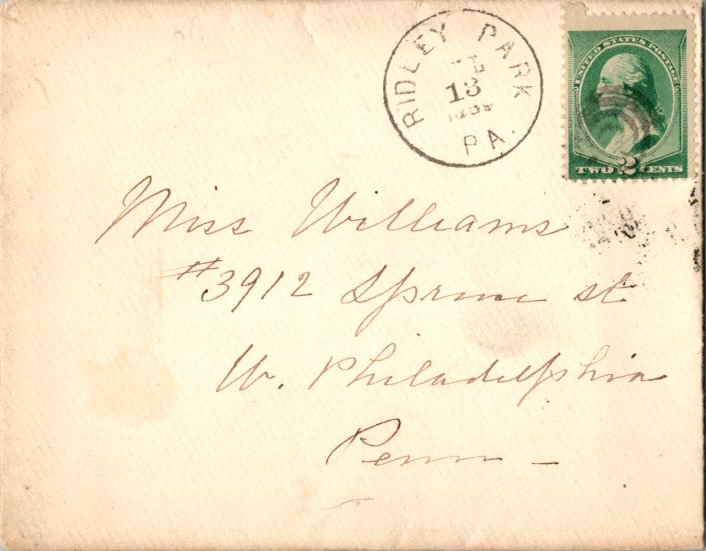 RIDLEY PARK
13
PA.
UNITED STATES POSTAGE
TWO 2 CENTS
Miss Williams
#3912 Spruce st
W. Philadelphia
Penn -